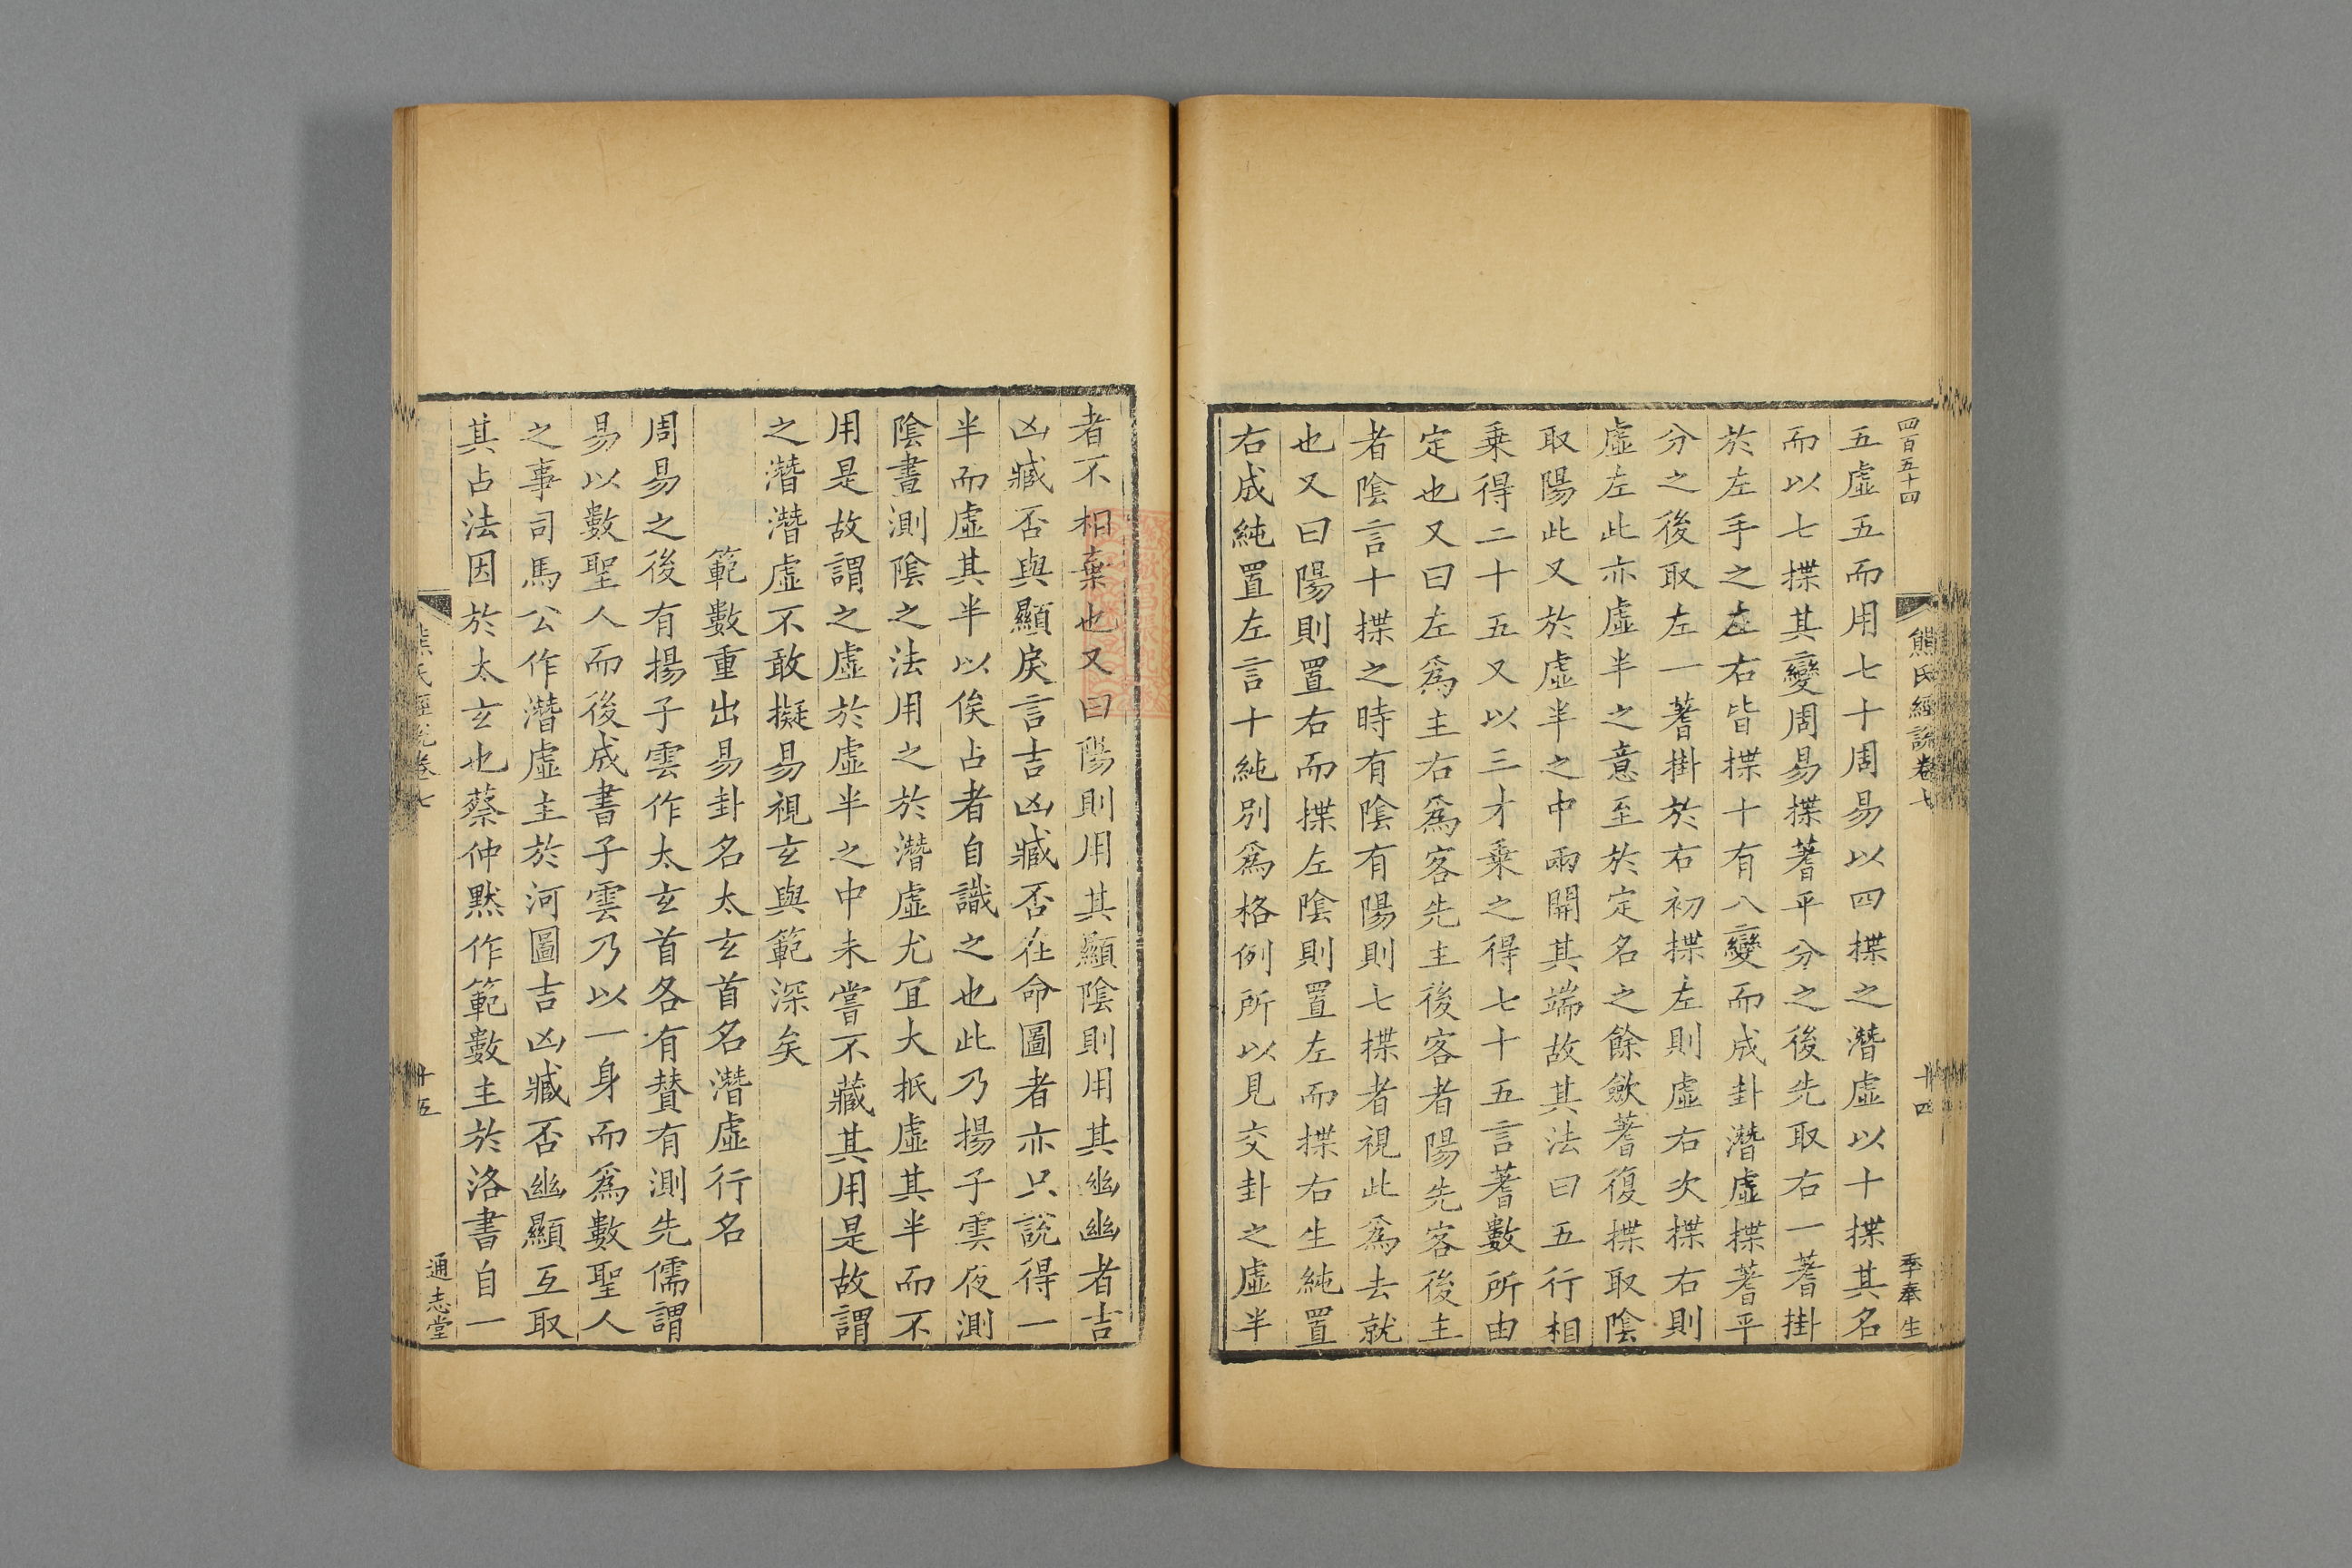 四百五十四
熊氏經說卷七
十四
季奉生
五虛五而用七十周易以四揲之潛虛以十揲其名
而以七揲其變周易揲蓍平分之後先取右一蓍掛
於左手之左右皆揲十有八變而成卦潛虛揲蓍平
分之後取左一蓍掛於右初揲左則虛右次揲右則
虛左此亦虛半之意至於定名之餘歛蓍復揲取陰
取陽此又於虛半之中兩開其端故其法曰五行相
乗得二十五又以三才乗之得七十五言蓍數所由
定也又曰左爲主右爲客先主後客者陽先客後主
者陰言十揲之時有陰有陽則七揲者視此爲去就
也又曰陽則置右而揲左陰則置左而揲右生純置
右成純置左言十純別爲格例所以見交卦之虛半
者不相棄也又曰陽則用其顯陰則用其幽幽者吉
凶臧否與顯戾言吉凶臧否在命圖者亦只説得一
半而虛其半以俟占者自識之也此乃揚子雲夜測
陰晝測陰之法用之於潛虛尤冝大抵虛其半而不
用是故謂之虛於虛半之中未嘗不藏其用是故謂
之潛潛虛不敢擬易視玄與範深矣
範數重出易卦名太玄首名潛虛行名
周易之後有揚子雲作太玄首各有賛有測先儒謂
易以數聖人而後成書子雲乃以一身而爲數聖人
之事司馬公作潛虛主於河圖吉凶臧否幽顯互取
其占法因於太玄也蔡仲黙作範數主於洛書自一
熊氏經說卷七
十五
通志堂